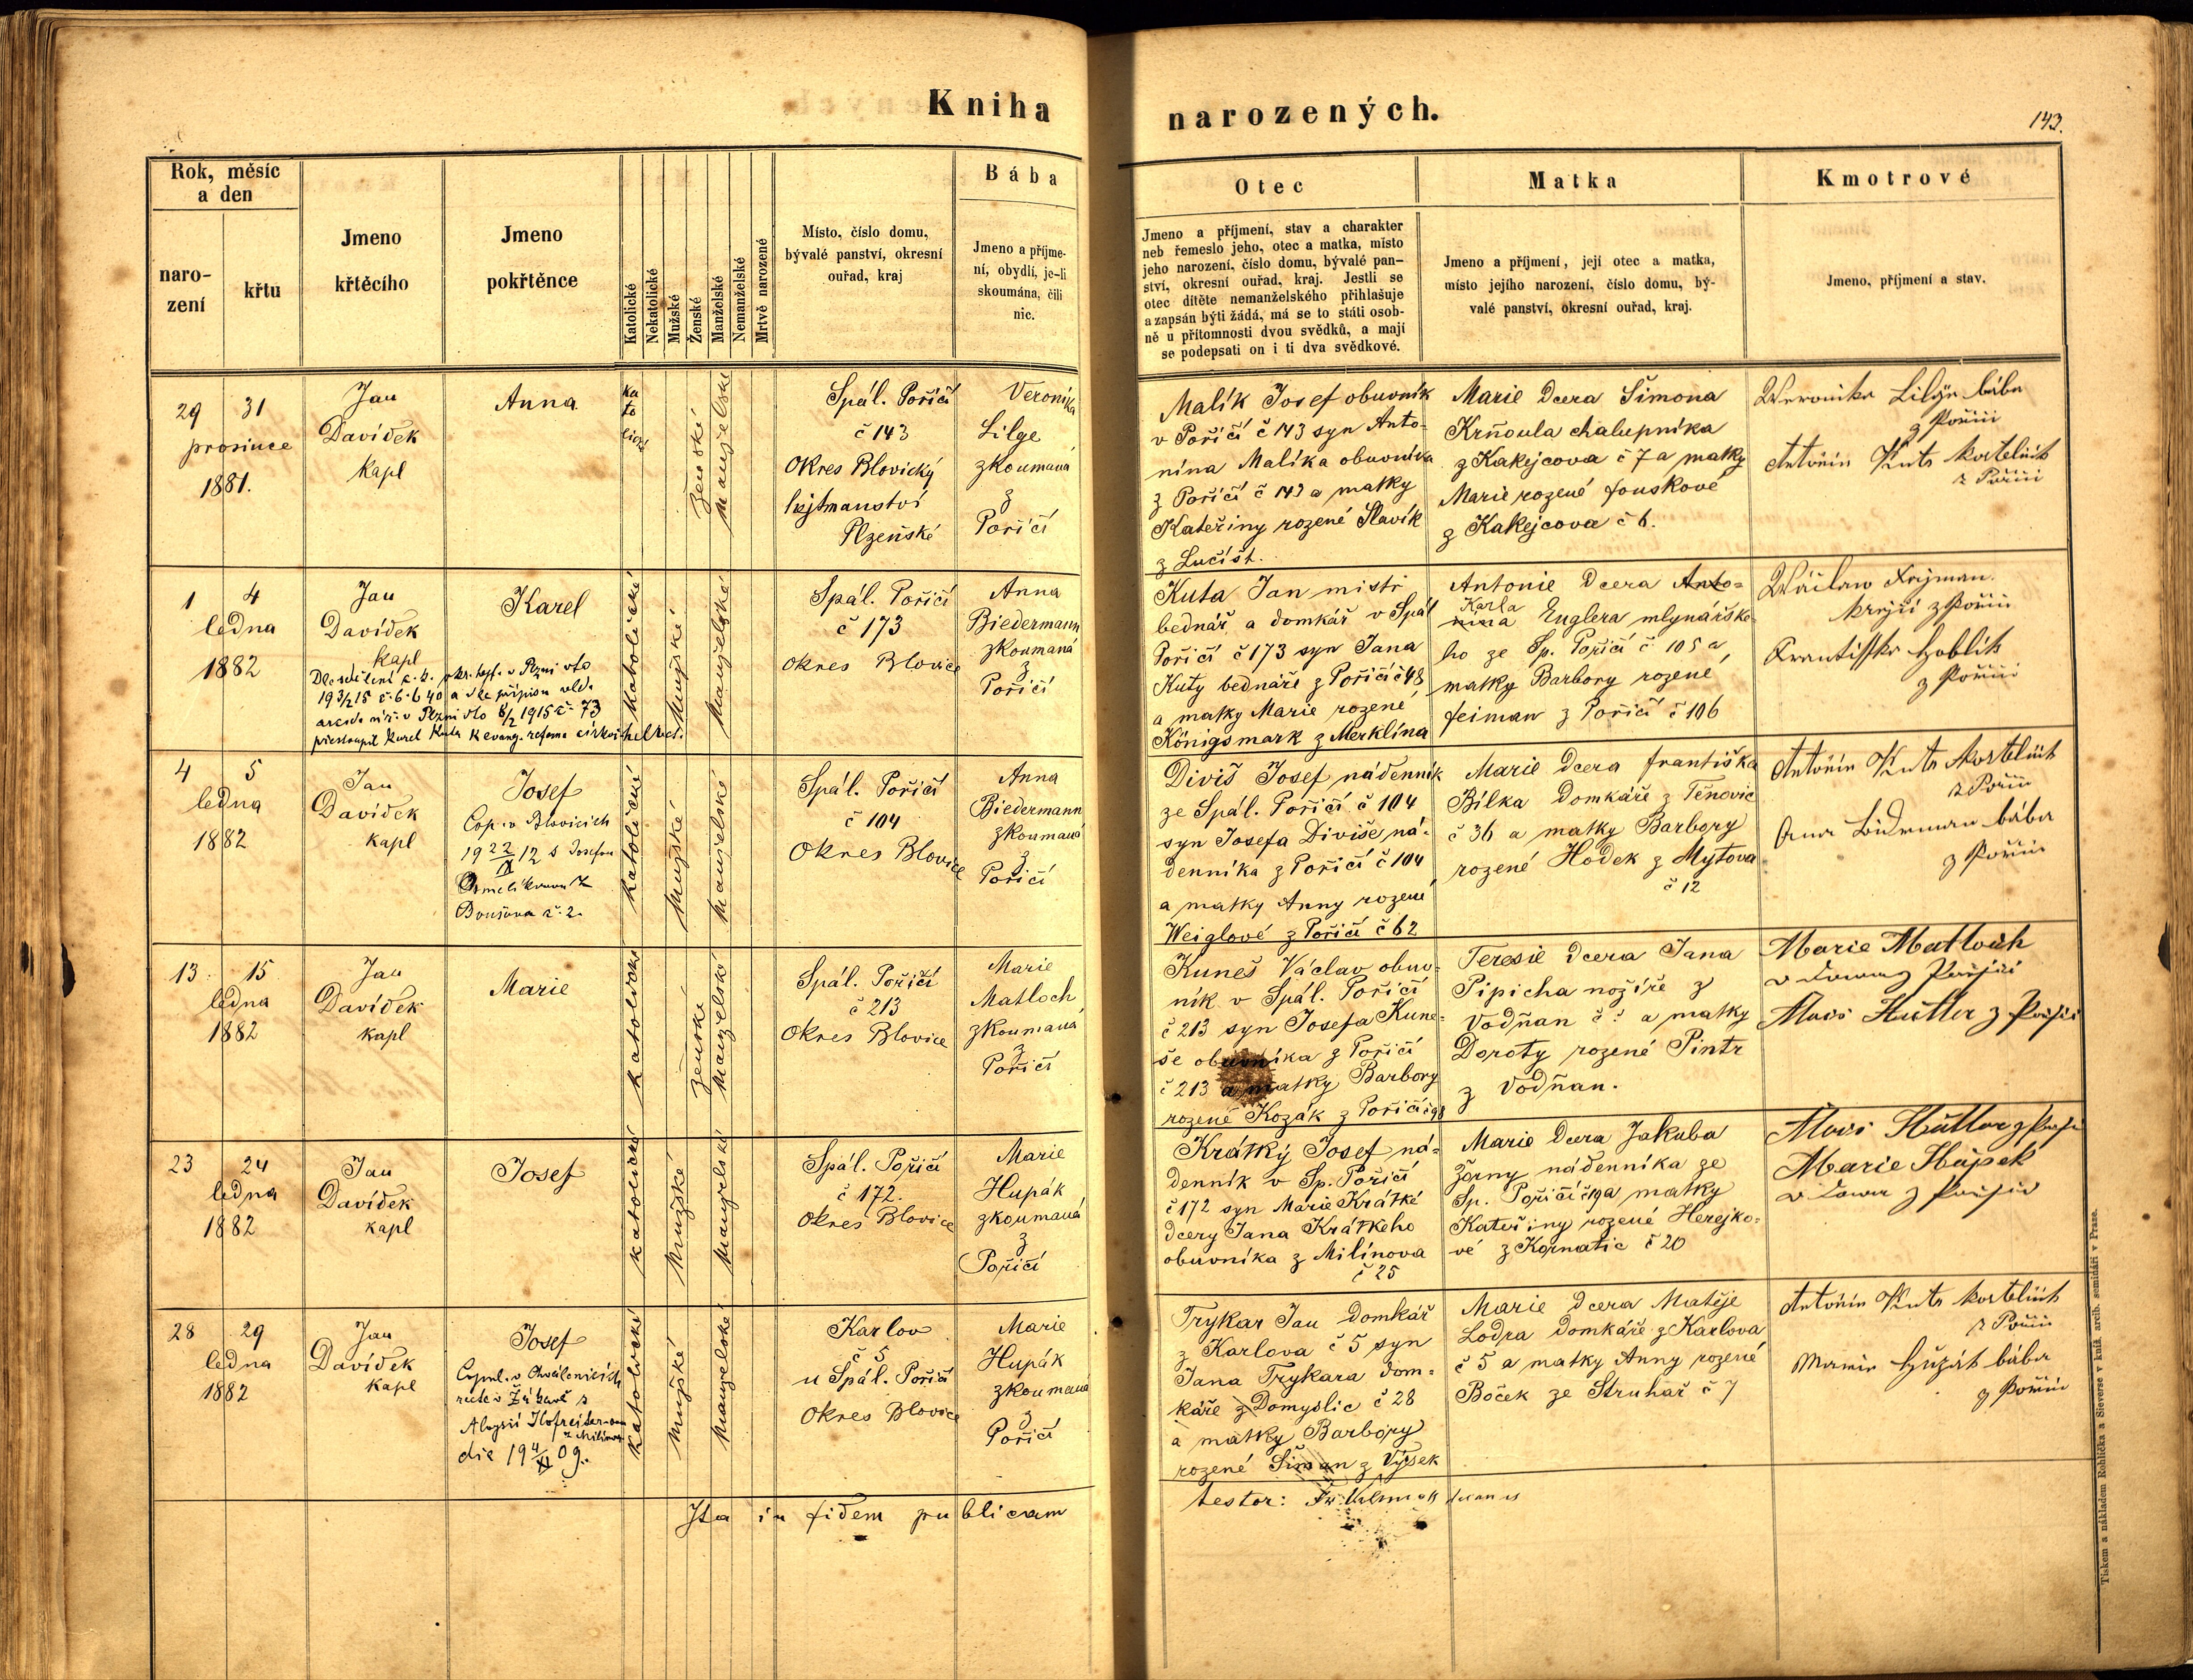 Kniha narozených.
143.
Rok, měsíc
a den
naro-
zení
křtu
Jmeno
křtěcího
Jmeno
pokřtěnce
Katolické
Nekatolické
Mužské
Ženské
Manželské
Nemanželské
Mrtvě narozené
Místo, číslo domu,
bývalé panství, okresní
ouřad, kraj
Bába
Jmeno a příjme-
ní, obydlí, je-li
skoumána, čili
nic.
Otec
Jmeno a příjmení, stav a charakter
neb řemeslo jeho, otec a matka, místo
jeho narození, číslo domu, bývalé pan-
ství, okresní ouřad, kraj. Jestli se
otec dítěte nemanželského přihlašuje
a zapsán býti žádá, má se to státi osob-
ně u přítomnosti dvou svědků, a mají
se podepsati on i ti dva svědkové.
Matka
Jmeno a příjmení, její otec a matka,
místo jejího narození, číslo domu, bý-
valé panství, okresní ouřad, kraj.
Kmotrové
Jmeno, příjmení a stav.
29 31
prosince
1881.
Jan
Davídek
kapl
Anna
ka
to
lické
ženské
manželské
Spál. Poříčí
č 143
Okres Blovický
hejtmanství
Plzeňské
Veronika
Lilge
zkoumaná
z
Poříčí
Malík Josef obuvník
v Poříčí č 143 syn Anto-
nína Malíka obuvníka
z Poříčí č 143 a matky
Kateřiny rozené Slavík
z Lučišt.
Marie dcera Šimona
Krňoula chalupníka
z Kakejcova č 7 a matky
Marie rozené Fouskové
z Kakejcova č 6.
Weronika Lilge bába
z Poříčí
Antonín Kuta kostelník
z Poříčí
1 4
ledna
1882
Jan
Davídek
kapl
Karel
19 3/2 15
přestoupil Karel Kuta k evang. reform. církvi helvet.
katolické
mužské
manželské
Spál. Poříčí
č 173
okres Blovice
Anna
Biedermann
zkoumaná
z
Poříčí
Kuta Jan mistr
bednář a domkář v Spál
Poříčí č 173 syn Jana
Kuty bednáře z Poříčí č 48
a matky Marie rozené
Königsmark z Merklína
Antonie dcera Anto-
Karla
nina Englera mlynářske-
ho ze Sp. Poříčí č 105 a
matky Barbory rozené
Feiman z Poříčí č 106
krejčí z Poříčí
Frantiska Hoblik
z Poříčí
4 5
ledna
1882
Jan
Davídek
kapl
Josef
Cop. v Blovicích
1922
katolické
mužské
manželské
Spál. Poříčí
č 104
Okres Blovice
Anna
Biedermann
zkoumaná
z
Poříčí
Diviš Josef nádenník
ze Spál. Poříčí č 104
syn Josefa Diviše ná-
denníka z Poříčí č 104
a matky Anny rozené
Weiglové z Poříčí č 62
Marie dcera Františka
Bílka domkáře z Těnovic
č 36 a matky Barbory
rozené Hodek z Mýtova
č 12
Antonín Kuta kostelník
z Poříčí
Ana Bidrman bába
z Poříčí
13 15
ledna
1882
Jan
Davídek
kapl
Marie
katolické
ženské
manželské
Spál. Poříčí
č 213
Okres Blovice
Marie
Matloch
zkoumaná
z
Poříčí
Kuneš Václav obuv-
ník v Spál. Poříčí
č 213 syn Josefa Kune-
še obuvníka z Poříčí
č 213 a matky Barbory
rozené Kozák z Poříčí č 98
Teresie dcera Jana
Pipicha nožíře z
Vodňan č: a matky
Doroty rozené Pintr
z Vodňan.
Marie Matloch
z Poříčí
Alois Hüttler z Poříčí
23 24
ledna
1882
Jan
Davídek
kapl
Josef
katolické
mužské
manželské
Spál. Poříčí
č 172.
Okres Blovice
Marie
Hupák
zkoumaná
z
Poříčí
Krátký Josef ná-
denník v Sp. Poříčí
č 172 syn Marie Krátké
dcery Jana Krátkeho
obuvníka z Milínova
č 25
Marie dcera Jakuba
Žorny nádenníka ze
Sp. Poříčí č 19 a matky
Kateřiny rozené Herejko-
vé z Kornatic č 20
Alois Hüttler z
Marie Hupák
z Poříčí
28 29
ledna
1882
Jan
Davídek
kapl
Josef
Copul. v Chválenicích
die 19 4/XI 09.
katolické
mužské
manželské
Karlov
č 5
u Spál. Poříčí
Okres Blovice
Marie
Hupák
zkoumaná
z
Poříčí
Trykar Jan domkář
z Karlova č 5 syn
Jana Trykara dom-
káře z Domyslic č 28
a matky Barbory
rozené Šiman z Výsek
Marie dcera Matěje
Lodra domkáře z Karlova
č 5 a matky Anny rozené
Boček ze Struhař č 7
Antonín Kuta kostelník
z Poříčí
Marie Hupák bába
z Poříčí
Ita in fidem publicam
testor:
Tiskem a nákladem Rohlíčka a Sieverse v kníž. arcib. semináři v Praze.